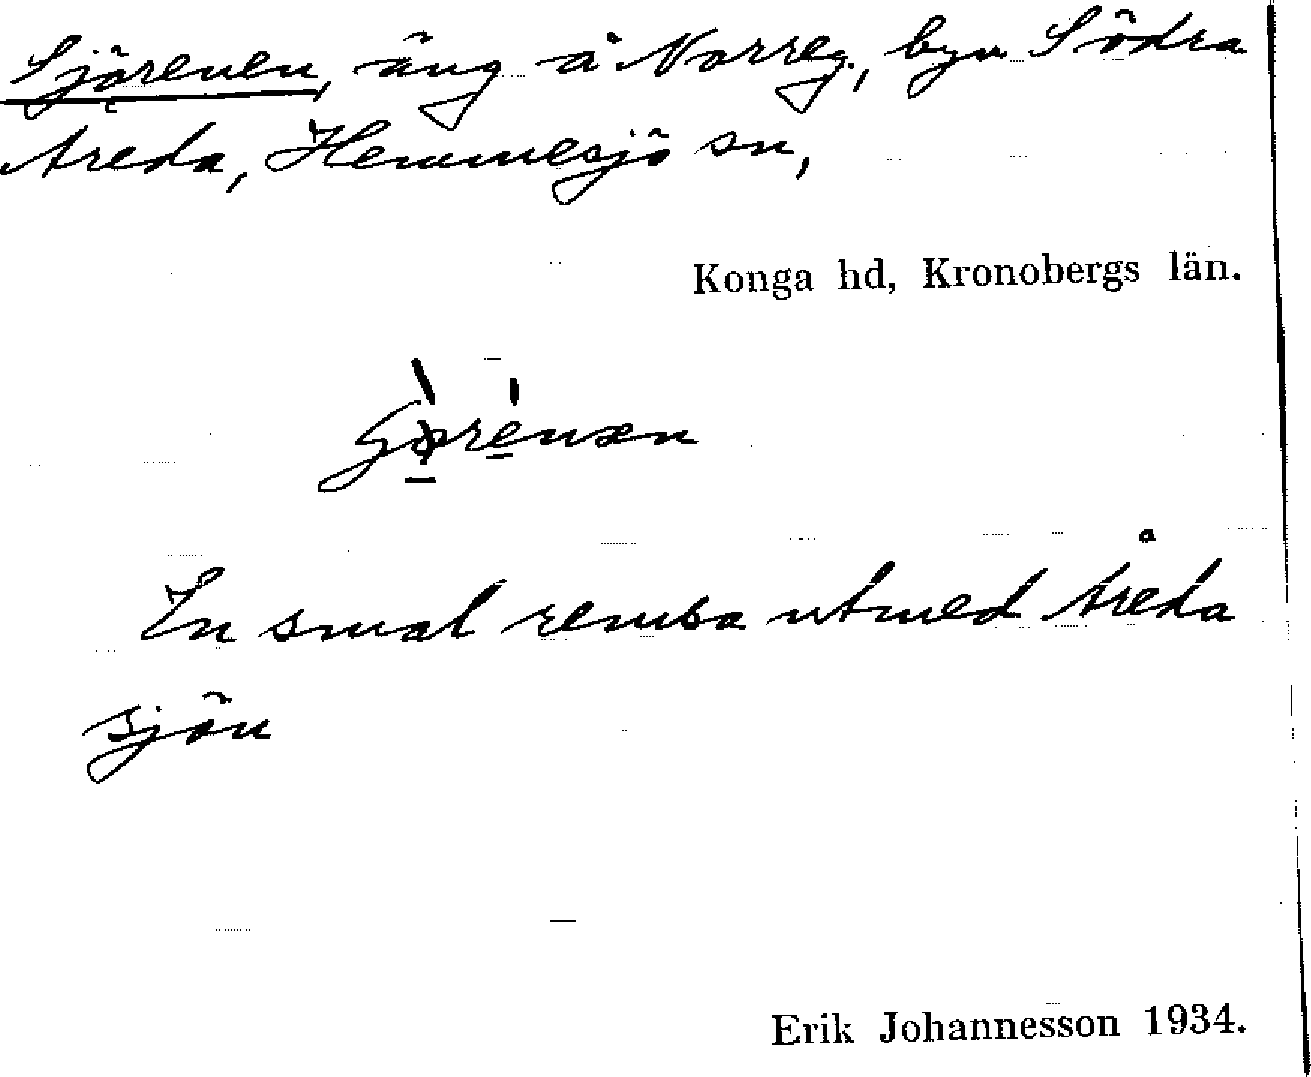 Sjörenen, äng å Norreg., byn Södra
Åreda, Hemmesjö sn,
Konga hd, Kronobergs län.
En smal remsa utmed Åreda
sjön
Erik Johannesson 1934.